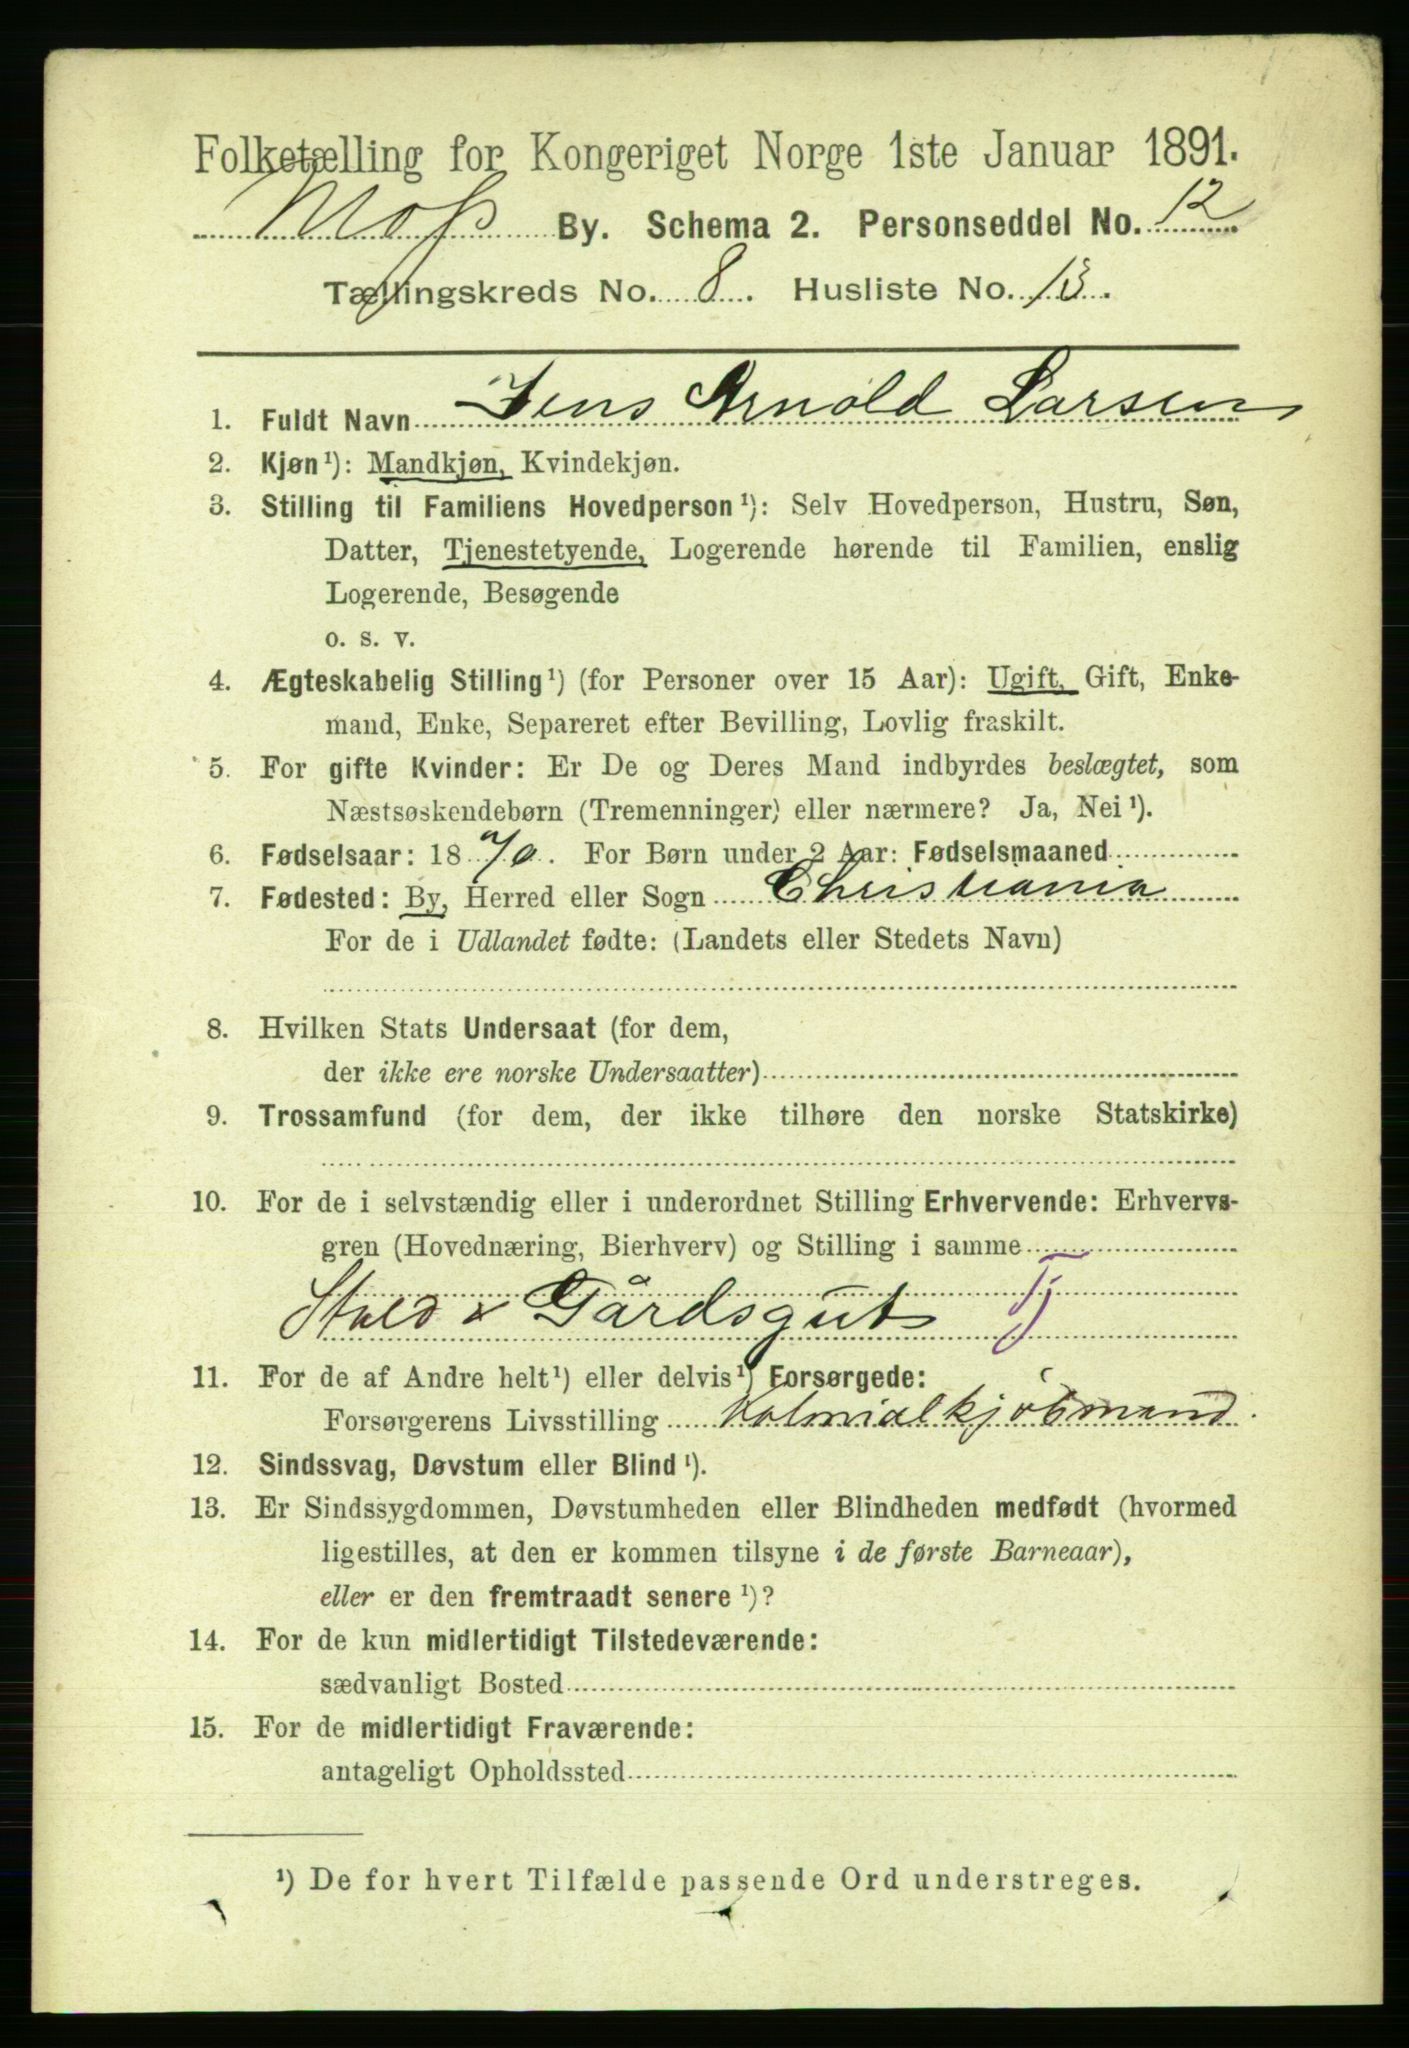 Folketælling for Kongeriget Norge 1ste Januar 1891.
Moss By. Schema 2. Personseddel No. 12
Tællingskreds No. 8. Husliste No. 13.
1. Fuldt Navn Jens Arnold Larsen
2. Kjøn¹): Mandkjøn, Kvindekjøn.
3. Stilling til Familiens Hovedperson¹): Selv Hovedperson, Hustru, Søn,
Datter, Tjenestetyende, Logerende hørende til Familien, enslig
Logerende, Besøgende
o. s. v.
4. Ægteskabelig Stilling¹) (for Personer over 15 Aar): Ugift, Gift, Enke-
mand, Enke, Separeret efter Bevilling, Lovlig fraskilt.
5. For gifte Kvinder: Er De og Deres Mand indbyrdes beslægtet, som
Næstsøskendebørn (Tremenninger) eller nærmere? Ja, Nei¹).
6. Fødselsaar: 1870. For Børn under 2 Aar: Fødselsmaaned
7. Fødested: By, Herred eller Sogn Christiania
For de i Udlandet fødte: (Landets eller Stedets Navn)
8. Hvilken Stats Undersaat (for dem,
der ikke ere norske Undersaatter)
9. Trossamfund (for dem, der ikke tilhøre den norske Statskirke)
10. For de i selvstændig eller i underordnet Stilling Erhvervende: Erhvervs-
gren (Hovednæring, Bierhverv) og Stilling i samme
Stald & Gårdsgut Tj
11. For de af Andre helt¹) eller delvis¹) Forsørgede:
Forsørgerens Livsstilling Kolonialkjøbmand.
12. Sindssvag, Døvstum eller Blind¹).
13. Er Sindssygdommen, Døvstumheden eller Blindheden medfødt (hvormed
ligestilles, at den er kommen tilsyne i de første Barneaar),
eller er den fremtraadt senere¹)?
14. For de kun midlertidigt Tilstedeværende:
sædvanligt Bosted
15. For de midlertidigt Fraværende:
antageligt Opholdssted
¹) De for hvert Tilfælde passende Ord understreges.